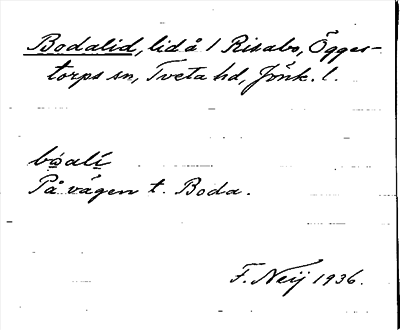 Bodalid, lid å 1 Risabo, Ögges-
torps sn, Tveta hd, Jönk. l.
bo̲alí̲
På vägen t. Boda.
F. Neij 1936.